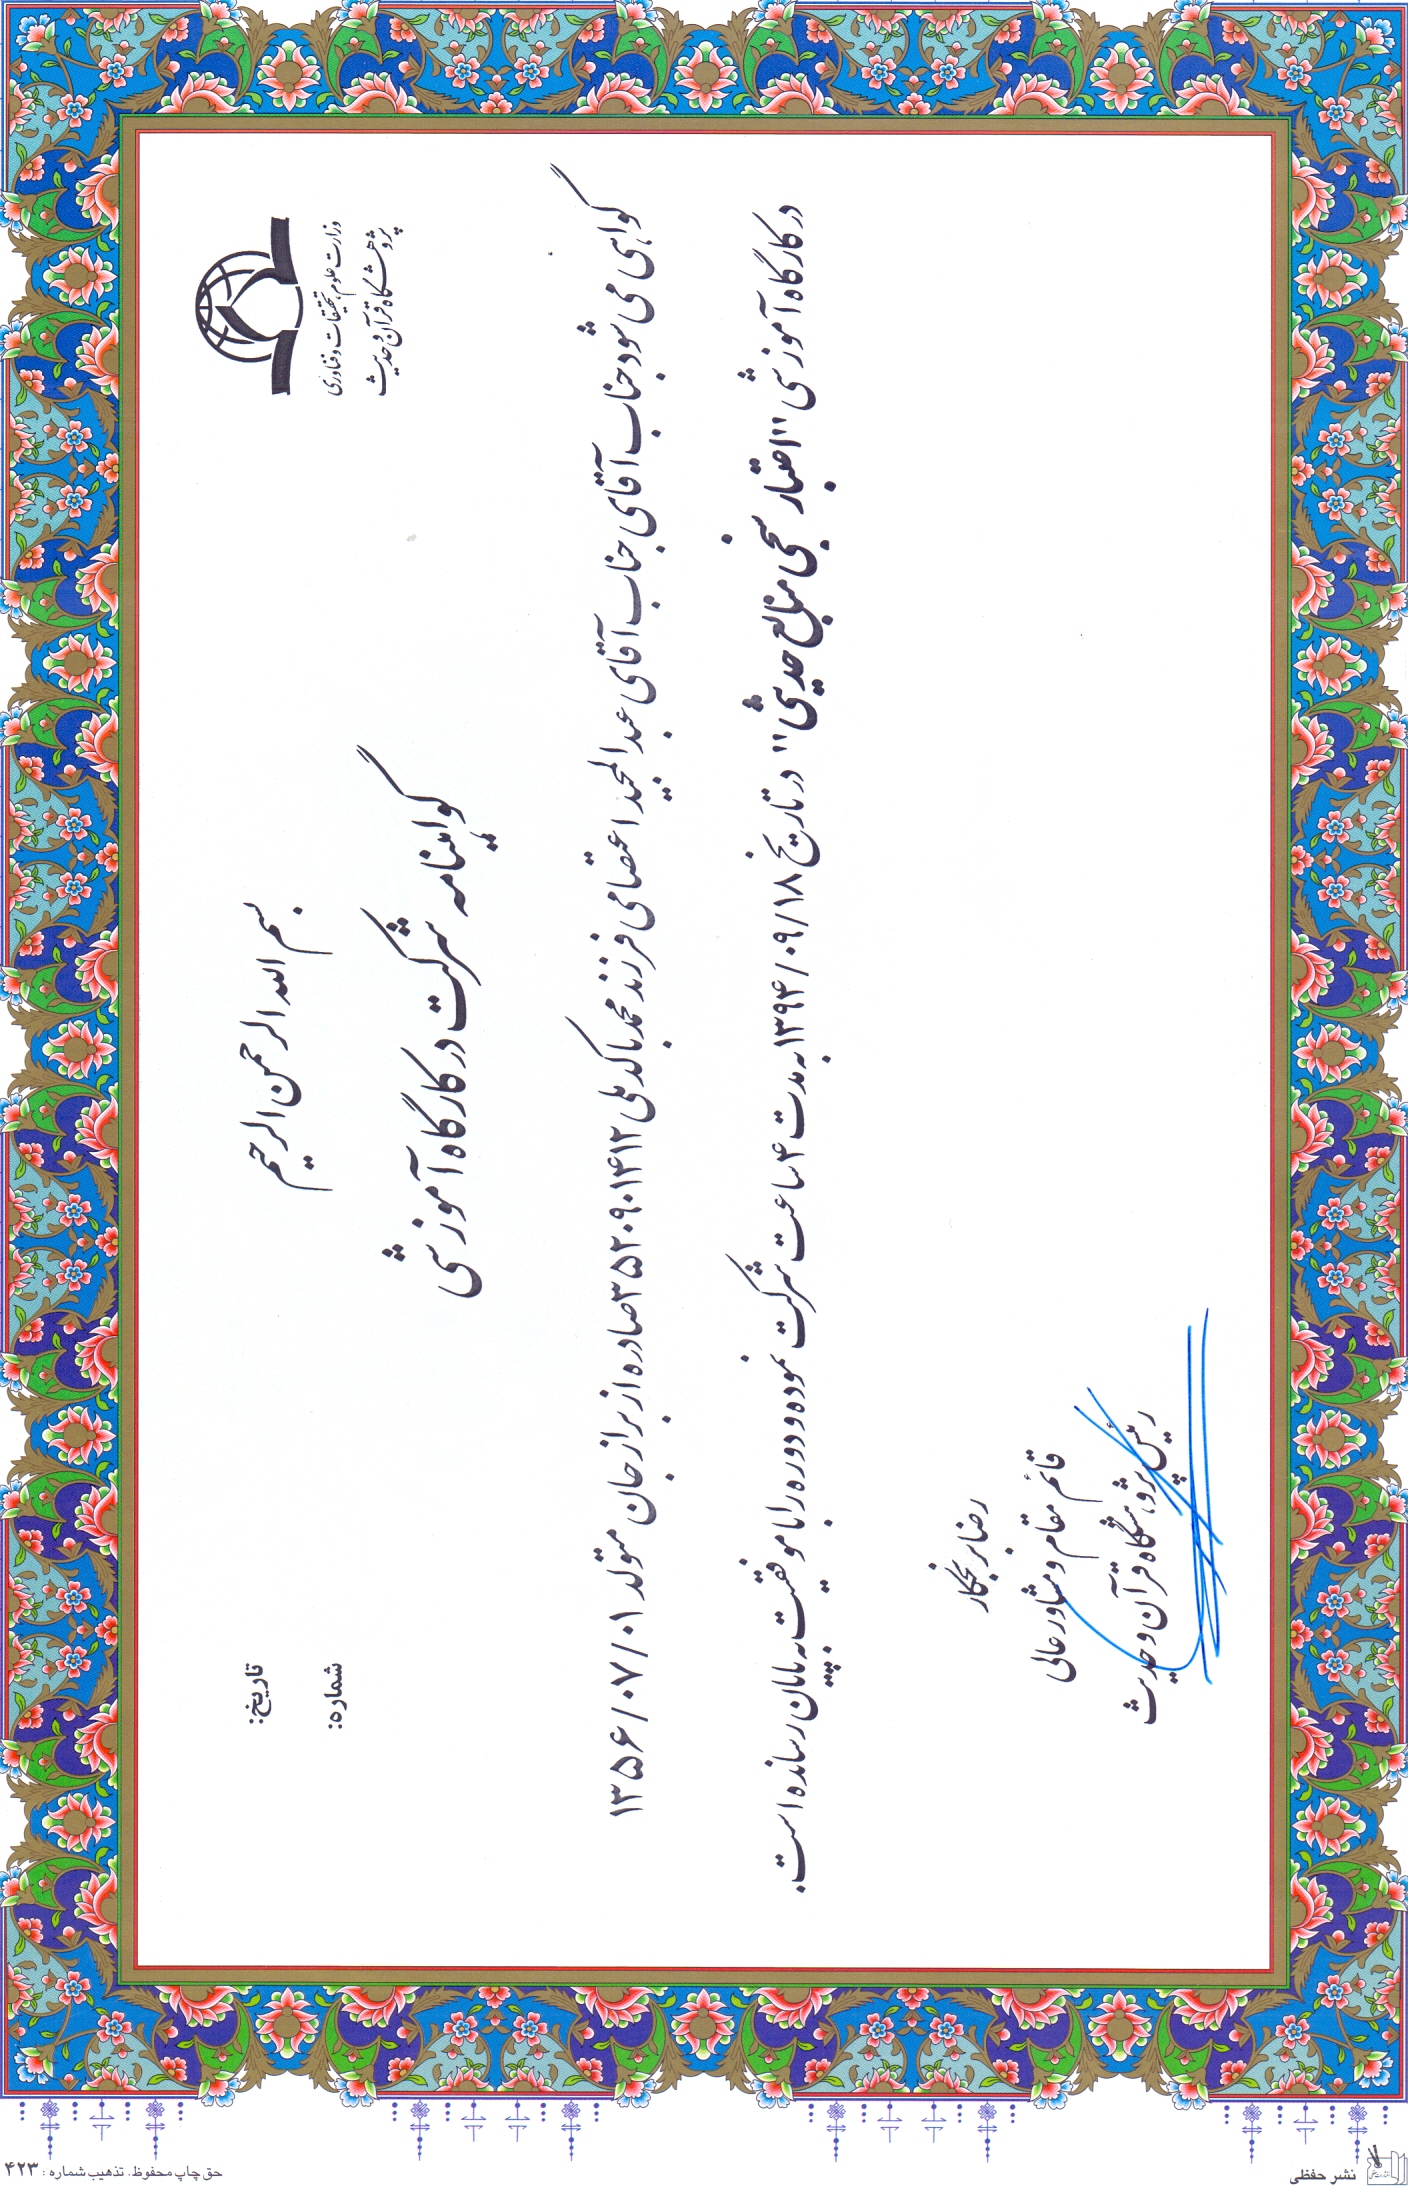 بسم الله الرحمن الرحیم
وزارت علوم، تحقیقات و فناوری
پژوهشگاه قرآن و حدیث
تاریخ:
شماره:
گواهینامه شرکت در کارگاه آموزشی
گواهی می شود جناب آقای جناب آقای عبدالمجید اعتصامی فرزند محمد با کد ملی ۳۵۲۰۹۰۱۴۱۲ صادره از برازجان متولد ۱۳۵۶/۰۷/۰۱
در کارگاه آموزشی "اعتبار سنجی منابع حدیثی" در تاریخ ۱۳۹۴/۰۹/۱۸ به مدت ۴ ساعت شرکت نموده و دوره را با موفقیت به پایان رسانده است.
رضا برنجکار
قائم مقام و مشاور عالی
رئیس پژوهشگاه قرآن و حدیث
حق چاپ محفوظ. تذهیب شماره: ۴۲۳
نشر حفظی